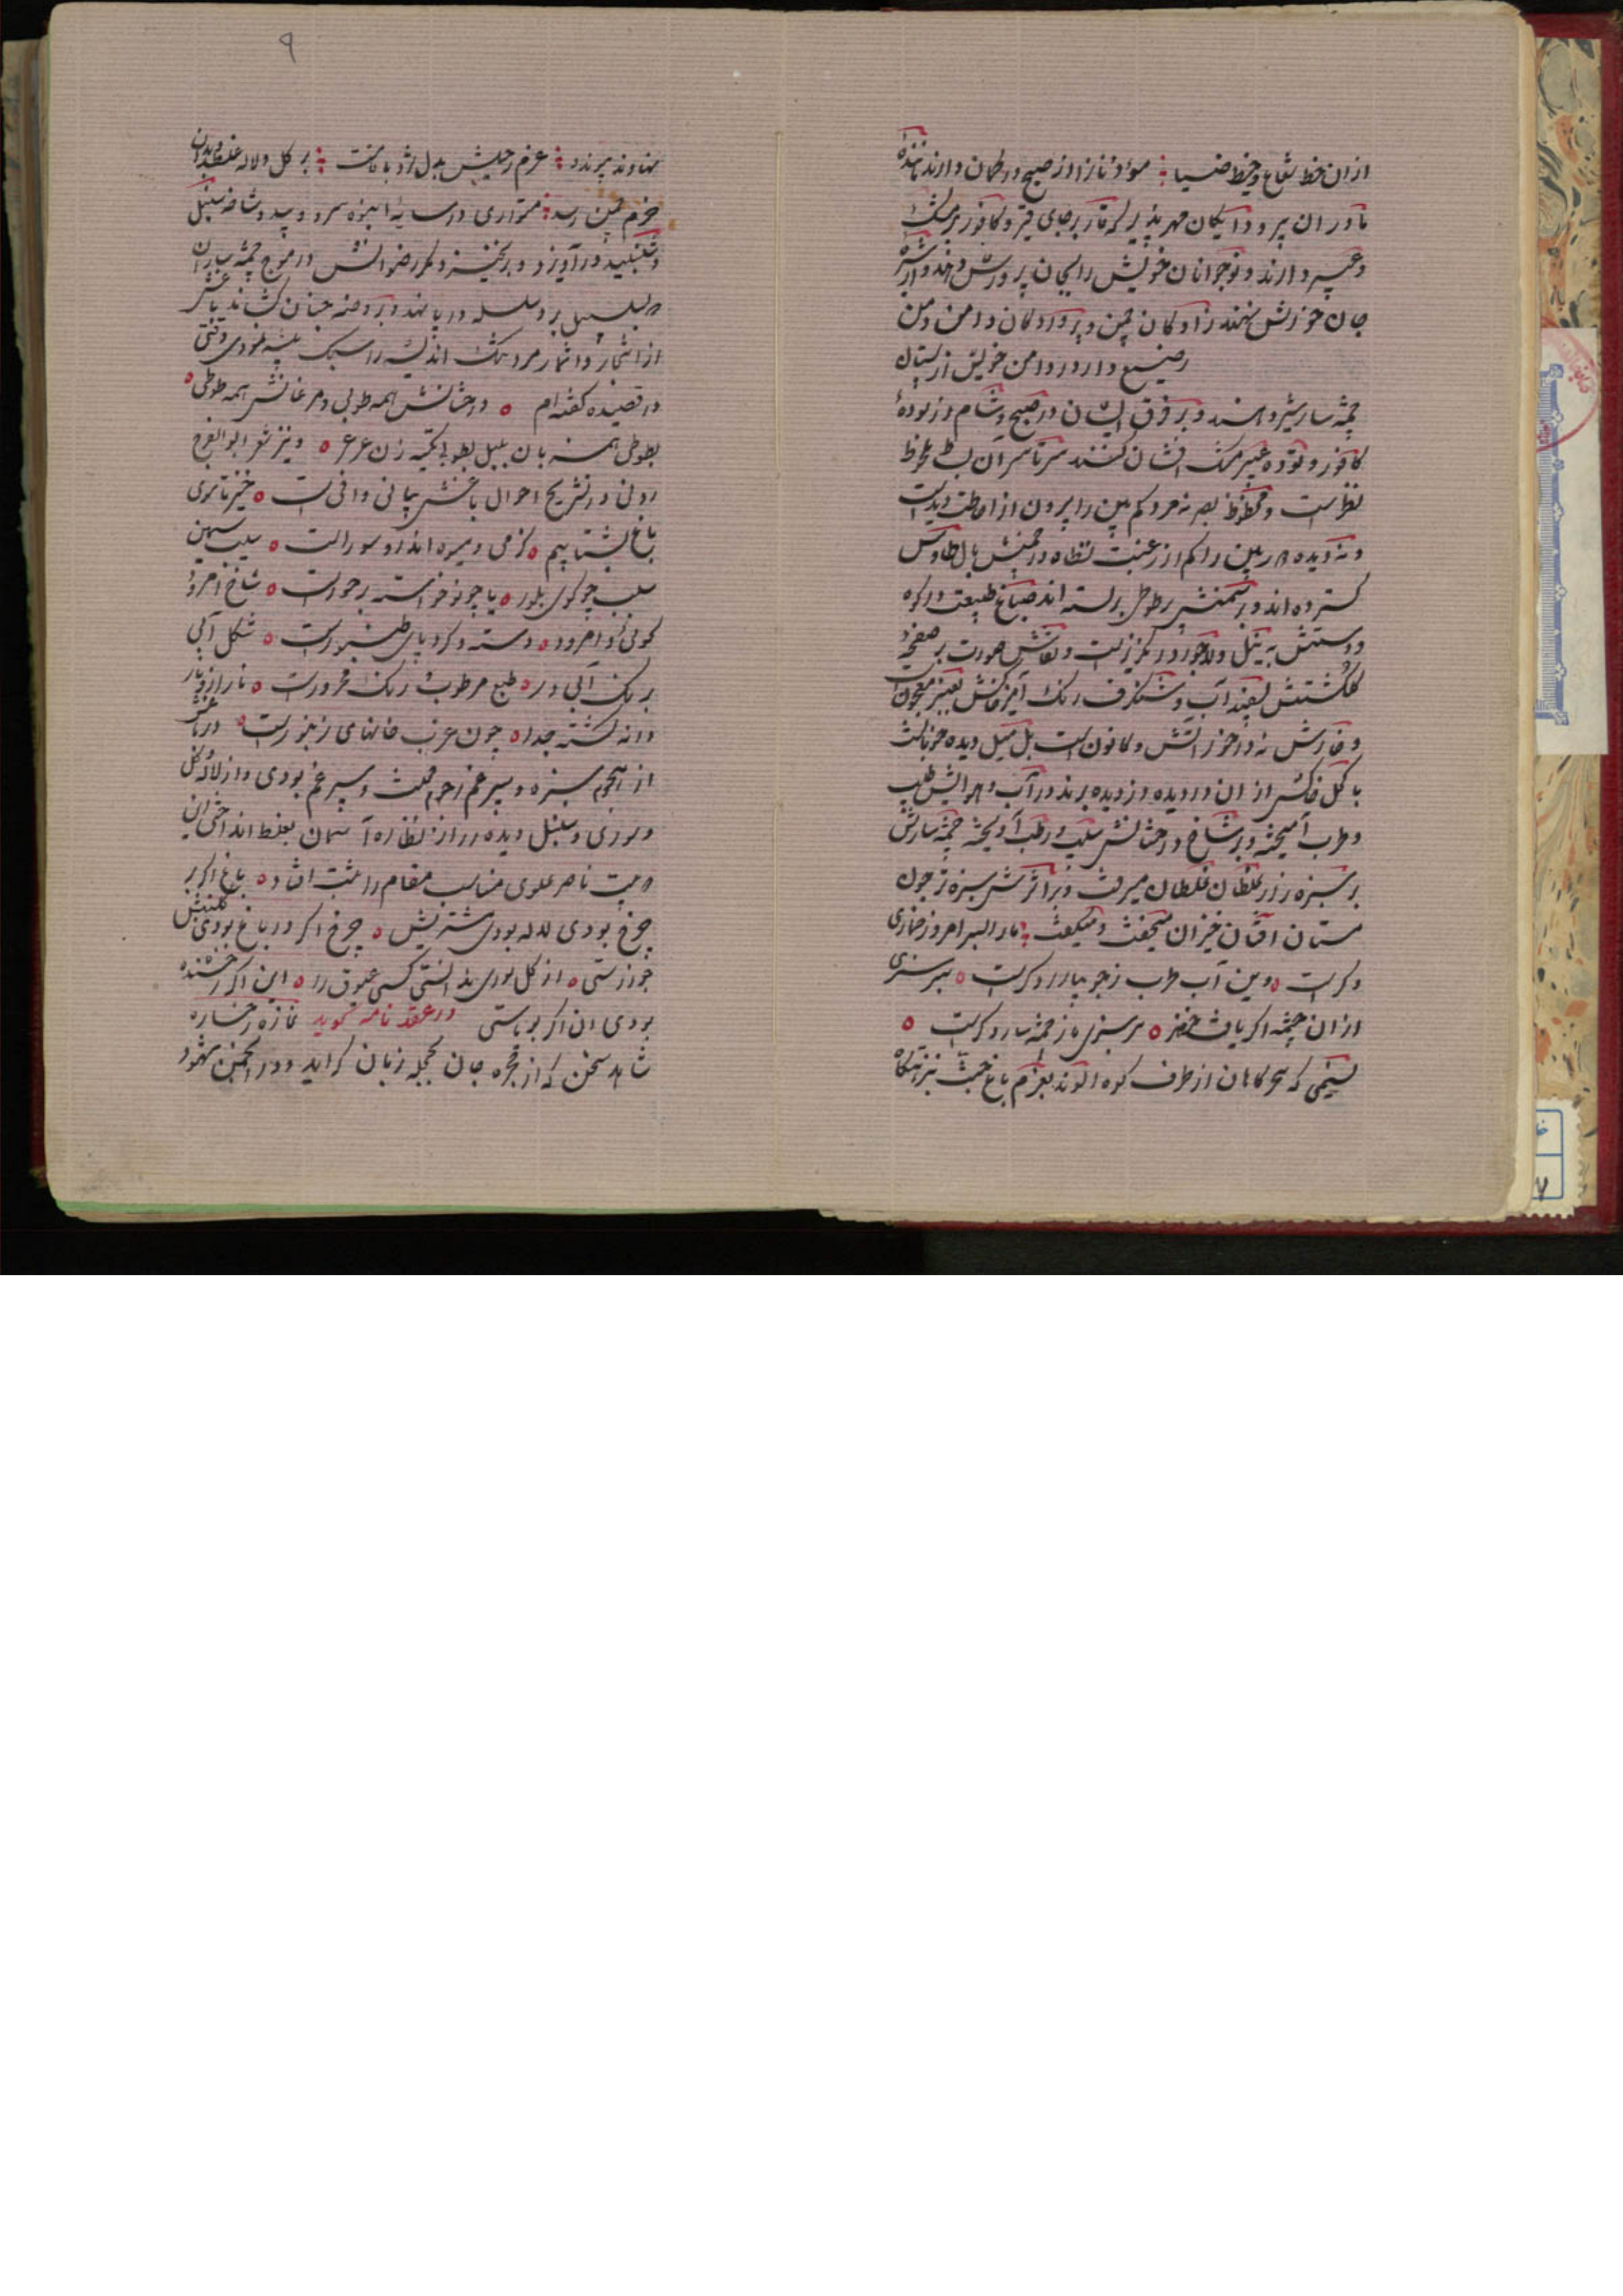 ازان خط شعاع و خیط ضیا مؤذنانرا از صبح در گمان دارند
مادران پر و دایگان مهرپذیر که قار بر جای قیر و کافور بر مشک
و عبیر دارند و نوجوانان خویش را بجان پرورش دهند و از شیره
جان خورش نهند زادگان چمن و پروردگان دامن دمن
رضیع دارد در دامن خویش از پستان
چشمه سار شیر دهند و بر فرق ایشان در صبح و شام از توده
کافور و توده عبیر مشک افشان کنند سرتاسر آن بساط محفوظ
نظر است و محظوظ بصر نه مردکم بین را بیرون از احاطت دیدست
و نه دیده بین را کم از رغبت نظاه در چمنش بال طاوس
گسترده اند و بر سمنش پر طوطی بر بسته اند صباغ طبیعت در کوه
و دشتش به نیل و لاجورد رنگرزیست و نقاش صورت بر صفحه
گلگشتش بسفید آب و شنگرف رنگ آمیز خاکش بعبیر معجون
و خارش نه درخور آتش و کانون است بل میل دیده خونابست
با گل خاکش از ان در دیده دزدیده برند در آب و هوایش طیب
و طرب آمیخته و بر شاخ درختانش سیب و رطب آویخته چشمه سارش
بر سبزه زار غلطان غلطان میرفت و بر اثرش سبزه ز چون
مستان افتان خیزان میخفت و میگفت ما را بسر امروز خماری
دگرست وین آب طرب ز جویبار دگرست سرسبزی
ازان چشمه اگر یافت خضر سرسبزی ما ز چشمه سار دگرست
نسیمی که سحرگاهان از طرف کوه الوند بعزم باغ جنت نزهتگاه
نهاوند برند عزم رحیلش بدل شد باقامت بر گل و لاله غلطیدن
خرم چمن رسد متواری در سایه انبوه سرو و بید و شاخ سنبل
و شنبلید درآویزد و برنخیزد مگر رضوانش در موج چشمه ساران
سلسبیل برد سلسله در پا نهد و بروضه جنان کشاند باغش
از اشجار و اثمار مرد تنگ اندیشه را سبک بیشه نمودی وقتی
در قصیده گفته ام درختانش همه طوبی و مرغانش همه طوطی
بطوطی همزبان بلبل بطوبی تکیه زن عرعر و نیز شعر ابوالفرج
رونی در تشریح احوال باغش بیانی وافی است خیز تا سوی
باغ بشتابیم کز می و میوه اندرو سور است سیب سیمین
سلب چو گوی بلور یا چو نوخواسته بر حورست شاخ امرود
گوئی و امرود دسته و گرد پای طنبورست شکل آبی
برنگ آبی در طبع مرطوب رنگ محرورست نار از وبار
دانه گشته جدا چون عرب خانهای زنبورست در باغش
از هجوم سبزه و سپرغم و سپر غم بودی و از لاله و گل
و سوری و سنبل دیده را از نظاره آسمان بغلط انداختی این
بیت ناصر علوی مناسب مقام را ثبت افتاد باغ اگر بر
چرخ بودی لاله بودی مشتریش چرخ اگر در باغ بودی گلبنش
جوزاستی از گل سوری ندانستی کسی عیوق را این اگر رخشنده
بودی ان اگر بویاستی در عقد نامه گوید غازه رخساره
شاهد سخن که از حجره جان بحجله زبان گراید و در انجمن شهود